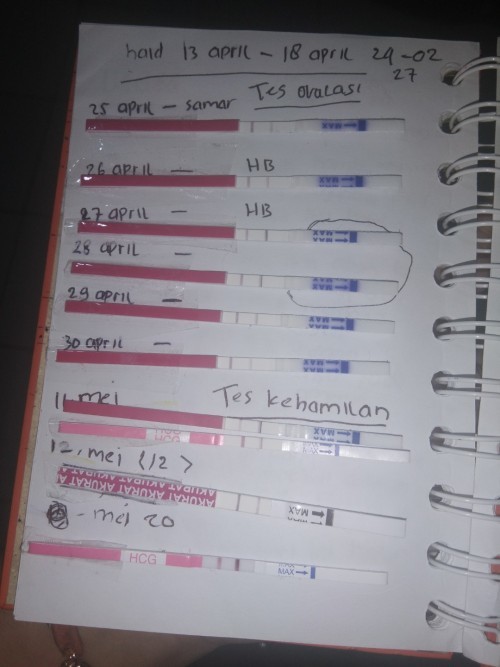 haid 13 april - 18 april 24-02
27
Tes ovulasi
25 april - samar
MAX
26 april - HB
MAX
27 april - HB
MAX
28 april -
MAX
29 april -
MAX
30 april -
MAX
11 mei
Tes kehamilan
MAX
MAX
12, mei (12)
AKURAT AKURAT AKURAT AKURAT A
MAX
- mei 20
HCG
MAX